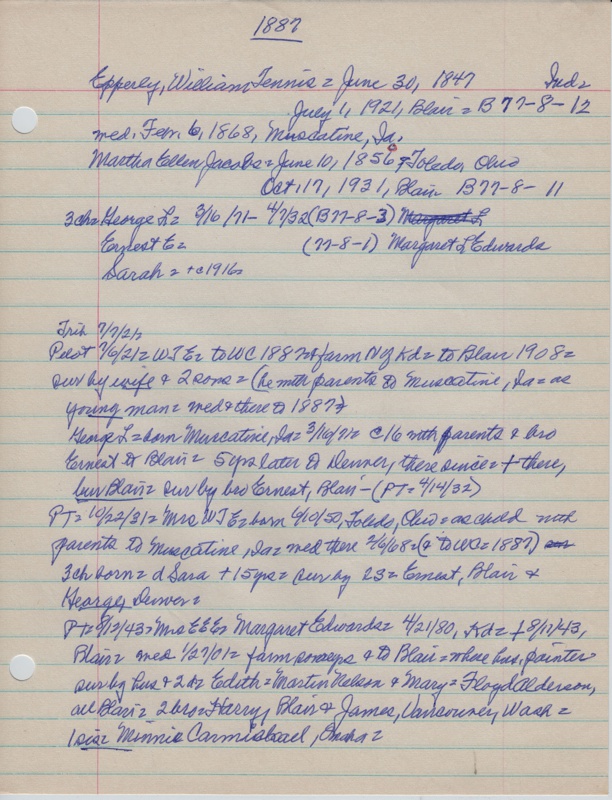 1887
Epperly, William Tennis = June 30, 1847 Ind =
July 1, 1921, Blair = B 77-8-12
med. Feb. 6, 1868, Muscatine, Ia.
Martha Ellen Jacobs = June 10, 1850 = Toledo, Ohio
Oct. 17, 1931, Blair B 77-8-11
3 ch = George L = 3/16/71 - 4/7/32 (B 77-8-3) Margaret L
Ernest E = (77-8-1) Margaret L Edwards
Sarah = + c1916 =
Trib 7/7/21 =
Pilot 7/6/21 = WTE = to WC 1887 + farm N of Kd = to Blair 1908 =
sur by wife & 2 sons = (he with parents to Muscatine, Ia = as
young man = med & there to 1887)
George L = born Muscatine, Ia = 3/16/71 = c16 with parents & bro
Ernest to Blair = 5 yrs later to Denver, there since = + there,
bur Blair = sur by bro Ernest, Blair - (PT = 4/14/32)
PT = 10/22/31 = Mrs WTE = born 6/10/50, Toledo, Ohio = as child with
parents to Muscatine, Ia = med there 2/6/68 = (& to WC = 1887)
3 ch born = d Sara + 15 yrs = sur by 2 S = Ernest, Blair &
George, Denver =
PT = 8/12/43 = Mrs EEE = Margaret Edwards = 4/21/80, Kd = + 8/11/43,
Blair = med 1/27/01 = farm some yrs & to Blair = where hus, painter =
sur by hus & 2 d = Edith = Martin Nelson & Mary = Floyd Alderson,
all Blair = 2 bro = Harry, Blair & James, Vancouver, Wash =
1 sis = Minnie Carmichael, Omaha =